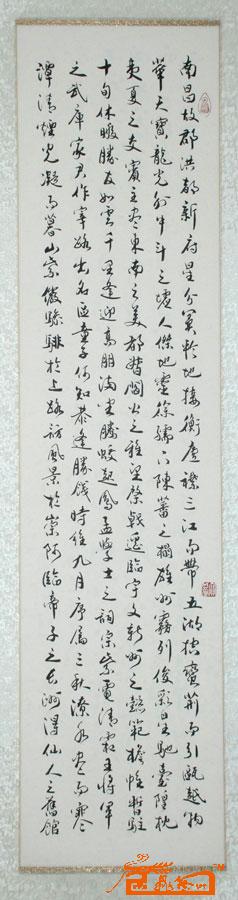 南昌故郡洪都新府星分翼軫地接衡廬襟三江而帶五湖控蠻荊而引甌越物
華天寶龍光射牛斗之墟人傑地靈徐孺下陳蕃之榻雄州霧列俊彩星馳臺隍枕
夷夏之交賓主盡東南之美都督閻公之雅望棨戟遙臨宇文新州之懿範襜帷暫駐
十旬休暇勝友如雲千里逢迎高朋滿坐騰蛟起鳳孟學士之詞宗紫電清霜王將軍
之武庫家君作宰路出名區童子何知恭逢勝餞時維九月序屬三秋潦水盡而寒
潭清煙光凝而暮山紫儼驂騑於上路訪風景於崇阿臨帝子之長洲得仙人之舊館